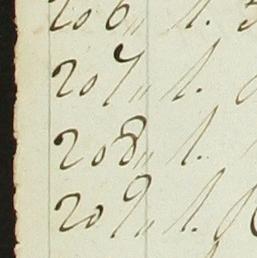 206 " 1.
207 " 1.
208 " 1.
209 " 1.